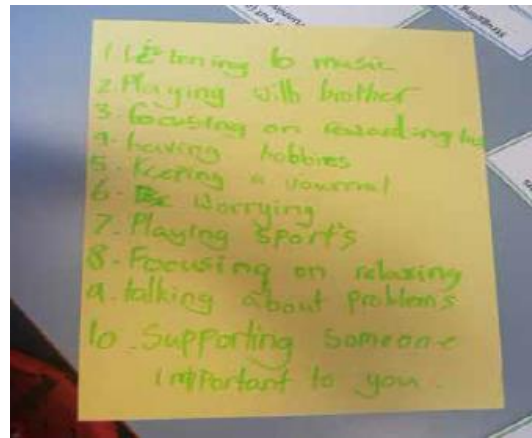 1. Listening to music
2. Playing with brother
3. focusing on rewarding
4. having hobbies
5. Keeping a journal
6. Worrying
7. Playing sport's
8. Focusing on relaxing
9. talking about problems
10. Supporting someone
important to you.